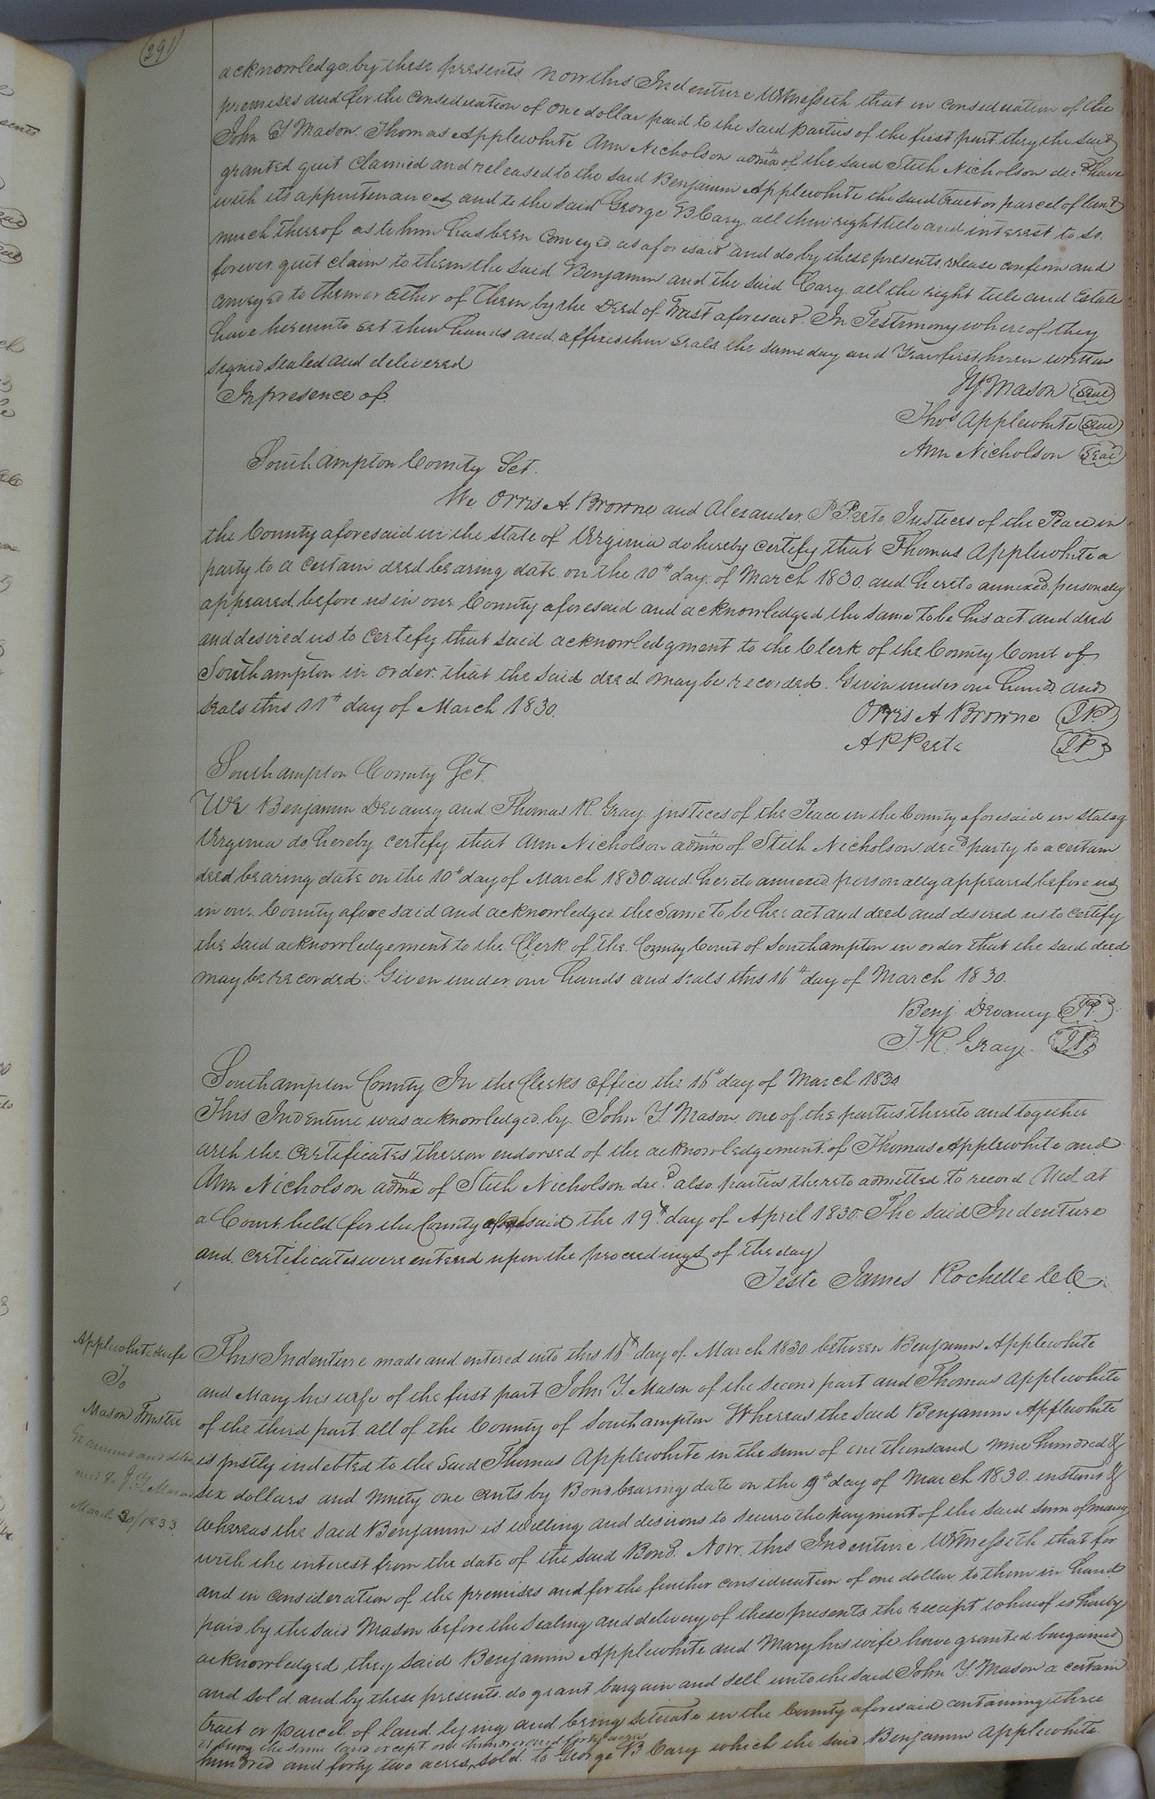 291
acknowledge by these presents Now this Indenture Witnesseth that in consideration of the
premises and for the consideration of one dollar paid to the said parties of the first part they the said
John Y Mason Thomas Applewhite Ann Nicholson admx of the said Stith Nicholson decd have
granted quit claimed and released to the said Benjamin Applewhite the said tract or parcel of land
with its appurtenances and to the said George B Cary all their right title and interest to so
much thereof as to him has been conveyed as aforesaid and do by these presents release confirm and
forever quit claim to them the said Benjamin and the said Cary all the right title and Estate
conveyed to them or either of them by the Deed of Trust aforesaid. In Testimony whereof they
have hereunto set their hands and affixes their seals the same day and Year first herein written
signed sealed and delivered
In presence of
J Y. Mason Seal
Thos Applewhite Seal
Ann Nicholson Seal
Southampton County Sct.
We Orris A. Browne and Alexander P Peete Justices of the Peace in
the County aforesaid in the state of Virginia do hereby certify that Thomas Applewhite a
party to a certain deed bearing date on the 10th day of March 1830 and hereto annexed personally
appeared before us in our County aforesaid and acknowledged the same to be his act and deed
and desired us to certify that said acknowledgment to the Clerk of the County Court of
Southampton in order that the said deed may be recorded. Given under our hands and
seals this 11th day of March 1830.
Orris A Browne J.P.
A P Peete J.P.
Southampton County Sct.
We Benjamin Devaney and Thomas R. Gray justices of the Peace in the County aforesaid in state of
Virginia do hereby certify that Ann Nicholson admx of Stith Nicholson decd party to a certain
deed bearing date on the 10th day of March 1830 and hereto annexed personally appeared before us
in our County aforesaid and acknowledged the same to be her act and deed and desired us to certify
the said acknowledgement to the Clerk of the County Court of Southampton in order that the said deed
may be recorded. Given under our hands and seals this 16th day of March 1830.
Benj Devaney J.P.
T. R. Gray. J.P.
Southampton County In the Clerks office the 16th day of March 1830
This Indenture was acknowledged by John Y Mason one of the parties thereto and together
with the certificates thereon endorsed of the acknowledgement of Thomas Applewhite and
Ann Nicholson admx of Stith Nicholson decd also parties thereto admitted to record And at
a Court held for the County aforesaid the 19th day of April 1830 The said Indenture
and certificates were entered upon the proceedings of the day
Teste James Rochelle CC
Applewhite & wife
To
Mason Trustee
Examined and delivered to J. Y. Mason
March 30/1833.
This Indenture made and entered into this 16th day of March 1830 between Benjamin Applewhite
and Mary his wife of the first part John Y. Mason of the second part and Thomas Applewhite
of the third part all of the County of Southampton Whereas the said Benjamin Applewhite
is justly indebted to the said Thomas Applewhite in the sum of one thousand nine hundred &
six dollars and ninety one cents by Bond bearing date on the 9th day of March 1830. instant &
whereas the said Benjamin is willing and desirous to secure the payment of the said sum of money
with the interest from the date of the said Bond. Now this Indenture Witnesseth that for
and in consideration of the premises and for the further consideration of one dollar to them in hand
paid by the said Mason before the sealing and delivery of these presents the receipt whereof is hereby
acknowledged they said Benjamin Applewhite and Mary his wife have granted bargained
and sold and by these presents do grant bargain and sell unto the said John Y. Mason a certain
tract or parcel of land lying and being situate in the County aforesaid containing three
it being the same land except one hundred and forty acres
hundred and forty two acres, sold to George B Cary which the said Benjamin Applewhite